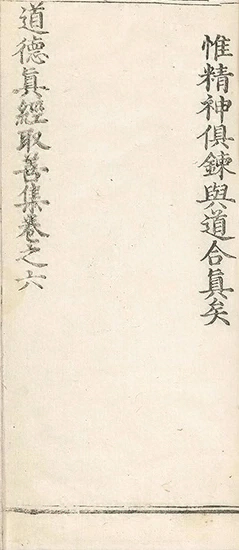 惟精神俱鍊與道合眞矣
道德眞經取善集卷之六